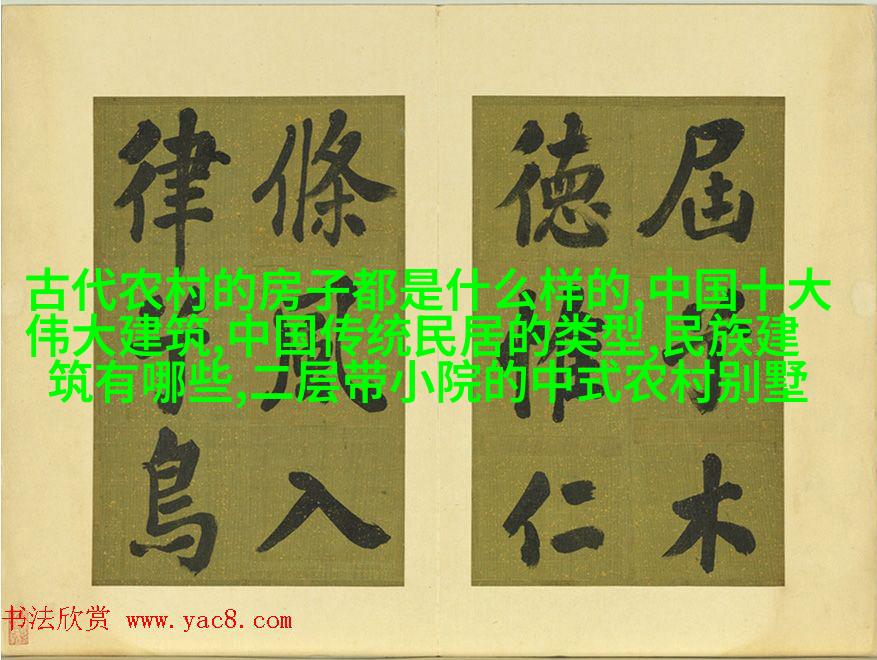 古代农村的房子都是什么样的,中国十大
伟大建筑,中国传统民居的类型,民族建
筑有哪些,二层带小院的中式农村别墅
屆木
德惟仁
條風入
律鳥
书法欣赏 www.yac8.com